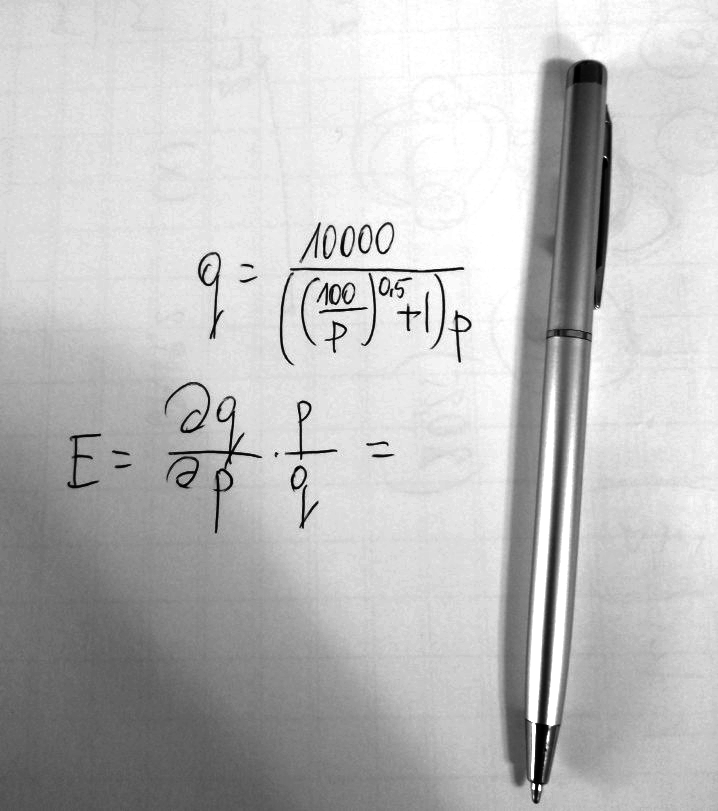 q = 10000 / (((100/p)^0,5 + 1) p)
E = ∂q/∂p · p/q =